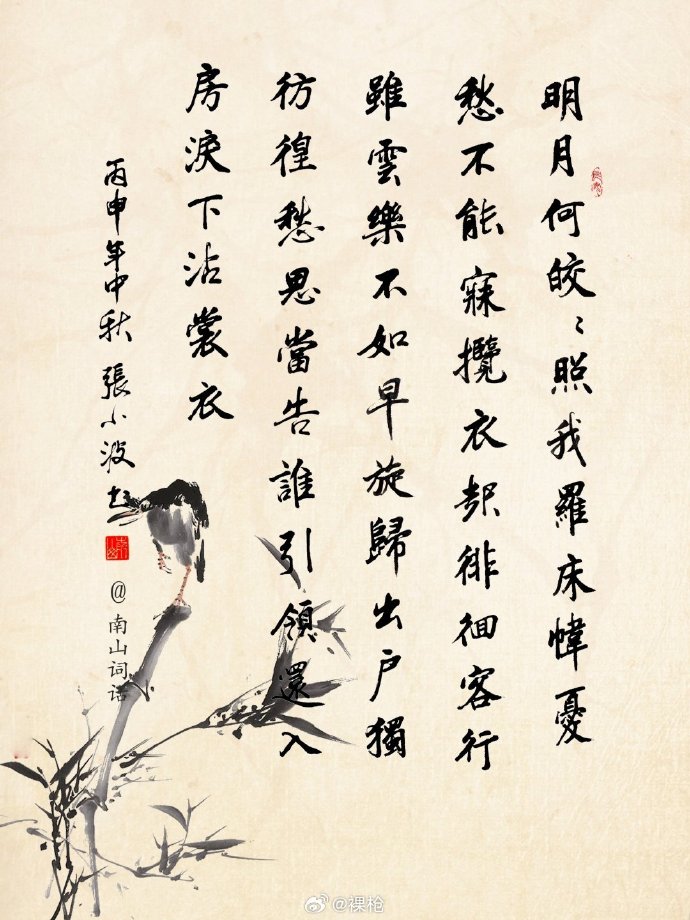 明月何皎〻照我羅床幃憂
愁不能寐攬衣起徘徊客行
雖雲樂不如早旋歸出户獨
彷徨愁思當告誰引領還入
房淚下沾裳衣
丙申年中秋張小波書
@南山词话
@裸枪